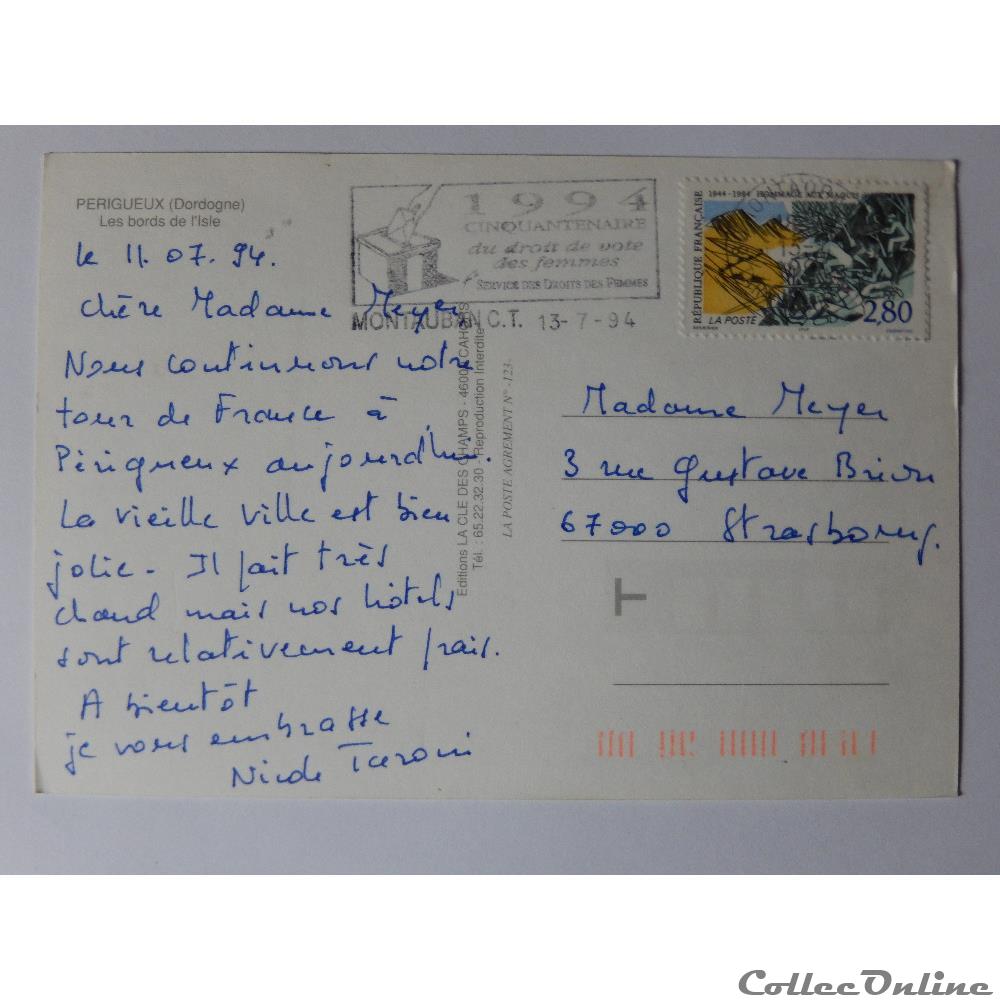 PERIGUEUX (Dordogne)
Les bords de l'Isle
le 11.07.94.
Chère Madame Meyer,
Nous continuons notre
tour de France à
Périgueux aujourd'hui.
La vieille ville est bien
jolie. Il fait très
chaud mais nos hôtels
sont relativement frais.
A bientôt
je vous embrasse
Nicole
1994
CINQUANTENAIRE
du droit de vote
des femmes
SERVICE DES DROITS DES FEMMES
MONTAUBAN C.T. 13-7-94
1944-1994 HOMMAGE AUX MAQUIS
RÉPUBLIQUE FRANÇAISE
LA POSTE
2,80
Editions LA CLE DES CHAMPS - 46000 CAHORS
Tél. : 65.22.32.30 - Reproduction Interdite
LA POSTE AGREMENT N° -123-
Madame Meyer
3 rue Gustave Brion
67000 Strasbourg.
T
CollecOnline